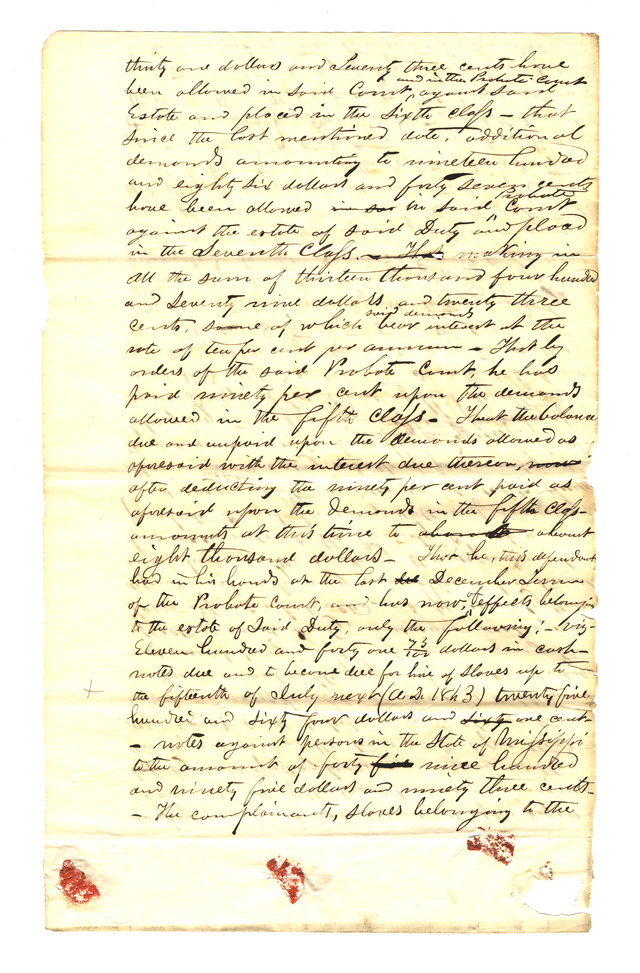 thirty one dollars and Seventy three cents have
been allowed in said Court and in the Probate Court against said
Estate and placed in the Sixth class – that
since the last mentioned date, additional
demands amounting to nineteen hundred
and eighty six dollars and forty seven cents
have been allowed in said Probate Court
against the estate of said Duty and placed
in the Seventh Class. – That making in
all the sum of thirteen thousand four hundred
and seventy nine dollars, and twenty three
cents, some of which said demands bear interest at the
rate of ten per cent per annum – That by
orders of the said Probate Court, he has
paid ninety per cent upon the demands
allowed in the fifth class – That the balance
due and unpaid upon the demands allowed as
aforesaid with the interest due thereon, now
after deducting the ninety per cent paid as
aforesaid upon the demands in the fifth class
amounts at this time to about
eight thousand dollars – That he, this defendant
had in his hands at the last December Session
of the Probate Court, and has now, of effects belonging
to the estate of said Duty, only the following: – viz–
Eleven hundred and forty one 73/100 dollars in cash–
notes due and to become due for hire of slaves up to
the fifteenth of July next (A.D. 1843) twenty five
hundred and sixty four dollars and sixty one cents–
– notes against persons in the State of Mississippi
to the amount of forty five nine hundred
and ninety five dollars and ninety three cents–
– The complainants, slaves belonging to the